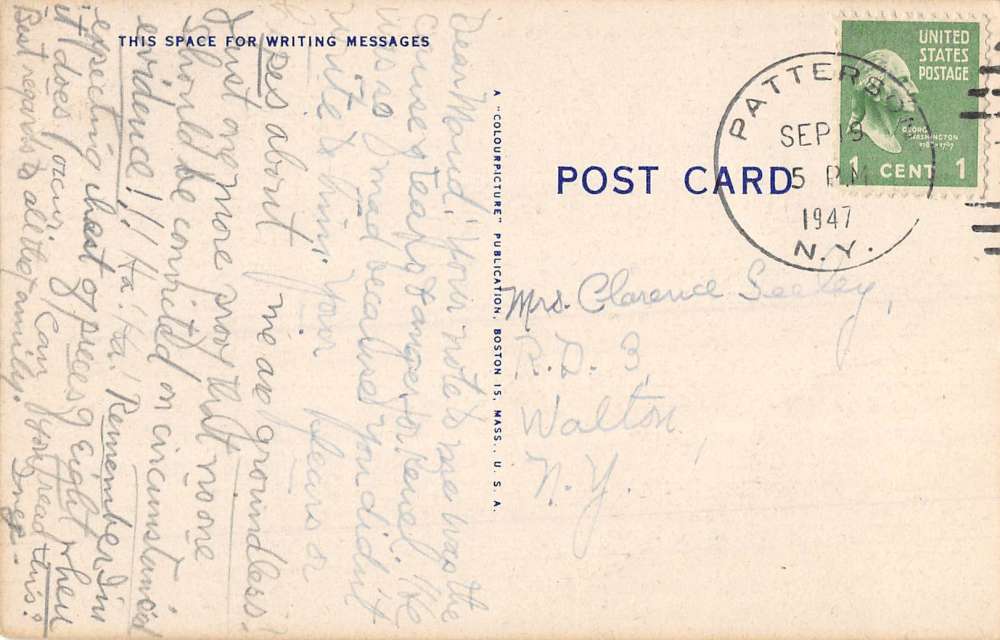 THIS SPACE FOR WRITING MESSAGES
Dear Maud: Your note to me was the
cause of tears & anger for He
was so mad because you didn't
write to him. Your fears or
about me are groundless!
Just on more proof that no one
should be convicted on circumstancial
evidence!!! Ha! Ha! Remember Im
expecting chest of pieces of eight when
it does occur. (Can you read this?
Best regards to all the family. Inez-
A "COLOURPICTURE" PUBLICATION, BOSTON 15, MASS., U. S. A.
POST CARD
PATTERSON
SEP 19
5 PM
1947
N.Y.
UNITED
STATES
POSTAGE
GEORGE
WASHINGTON
1789-1797
1 CENT 1
Mrs. Clarence Seeley,
R.D. 3,
Walton,
N.Y.